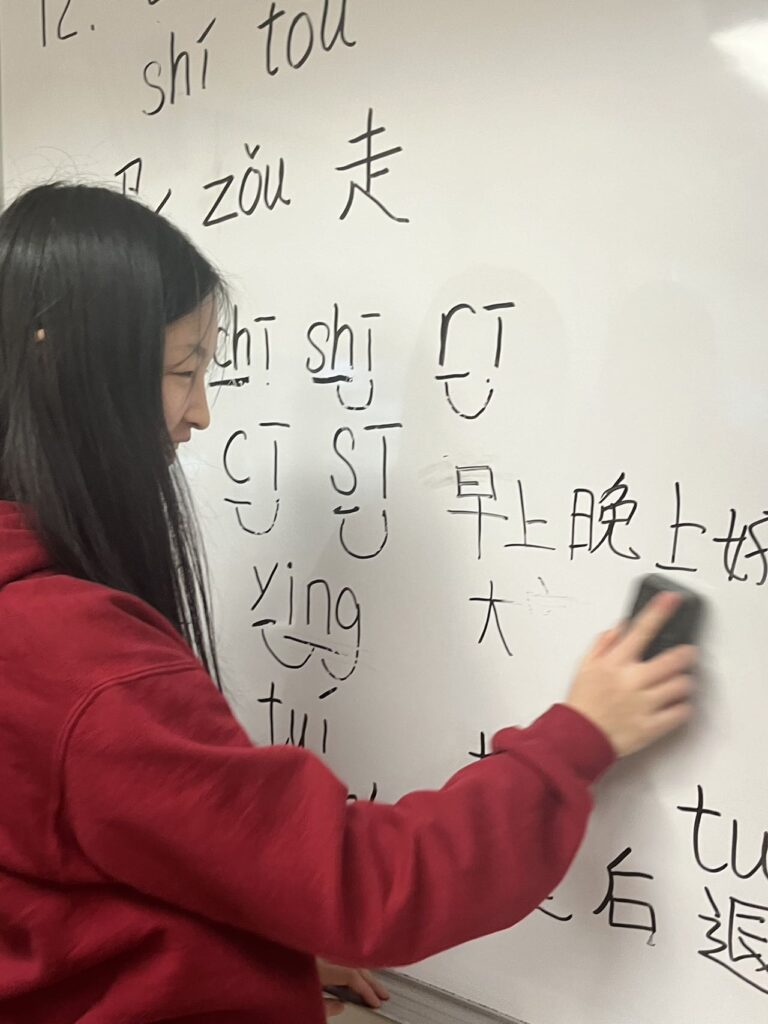 12.
shí tou
zǒu 走
chī shī rī
cī sī
早上晚上好
yīng
大
tuí
tu
后 退